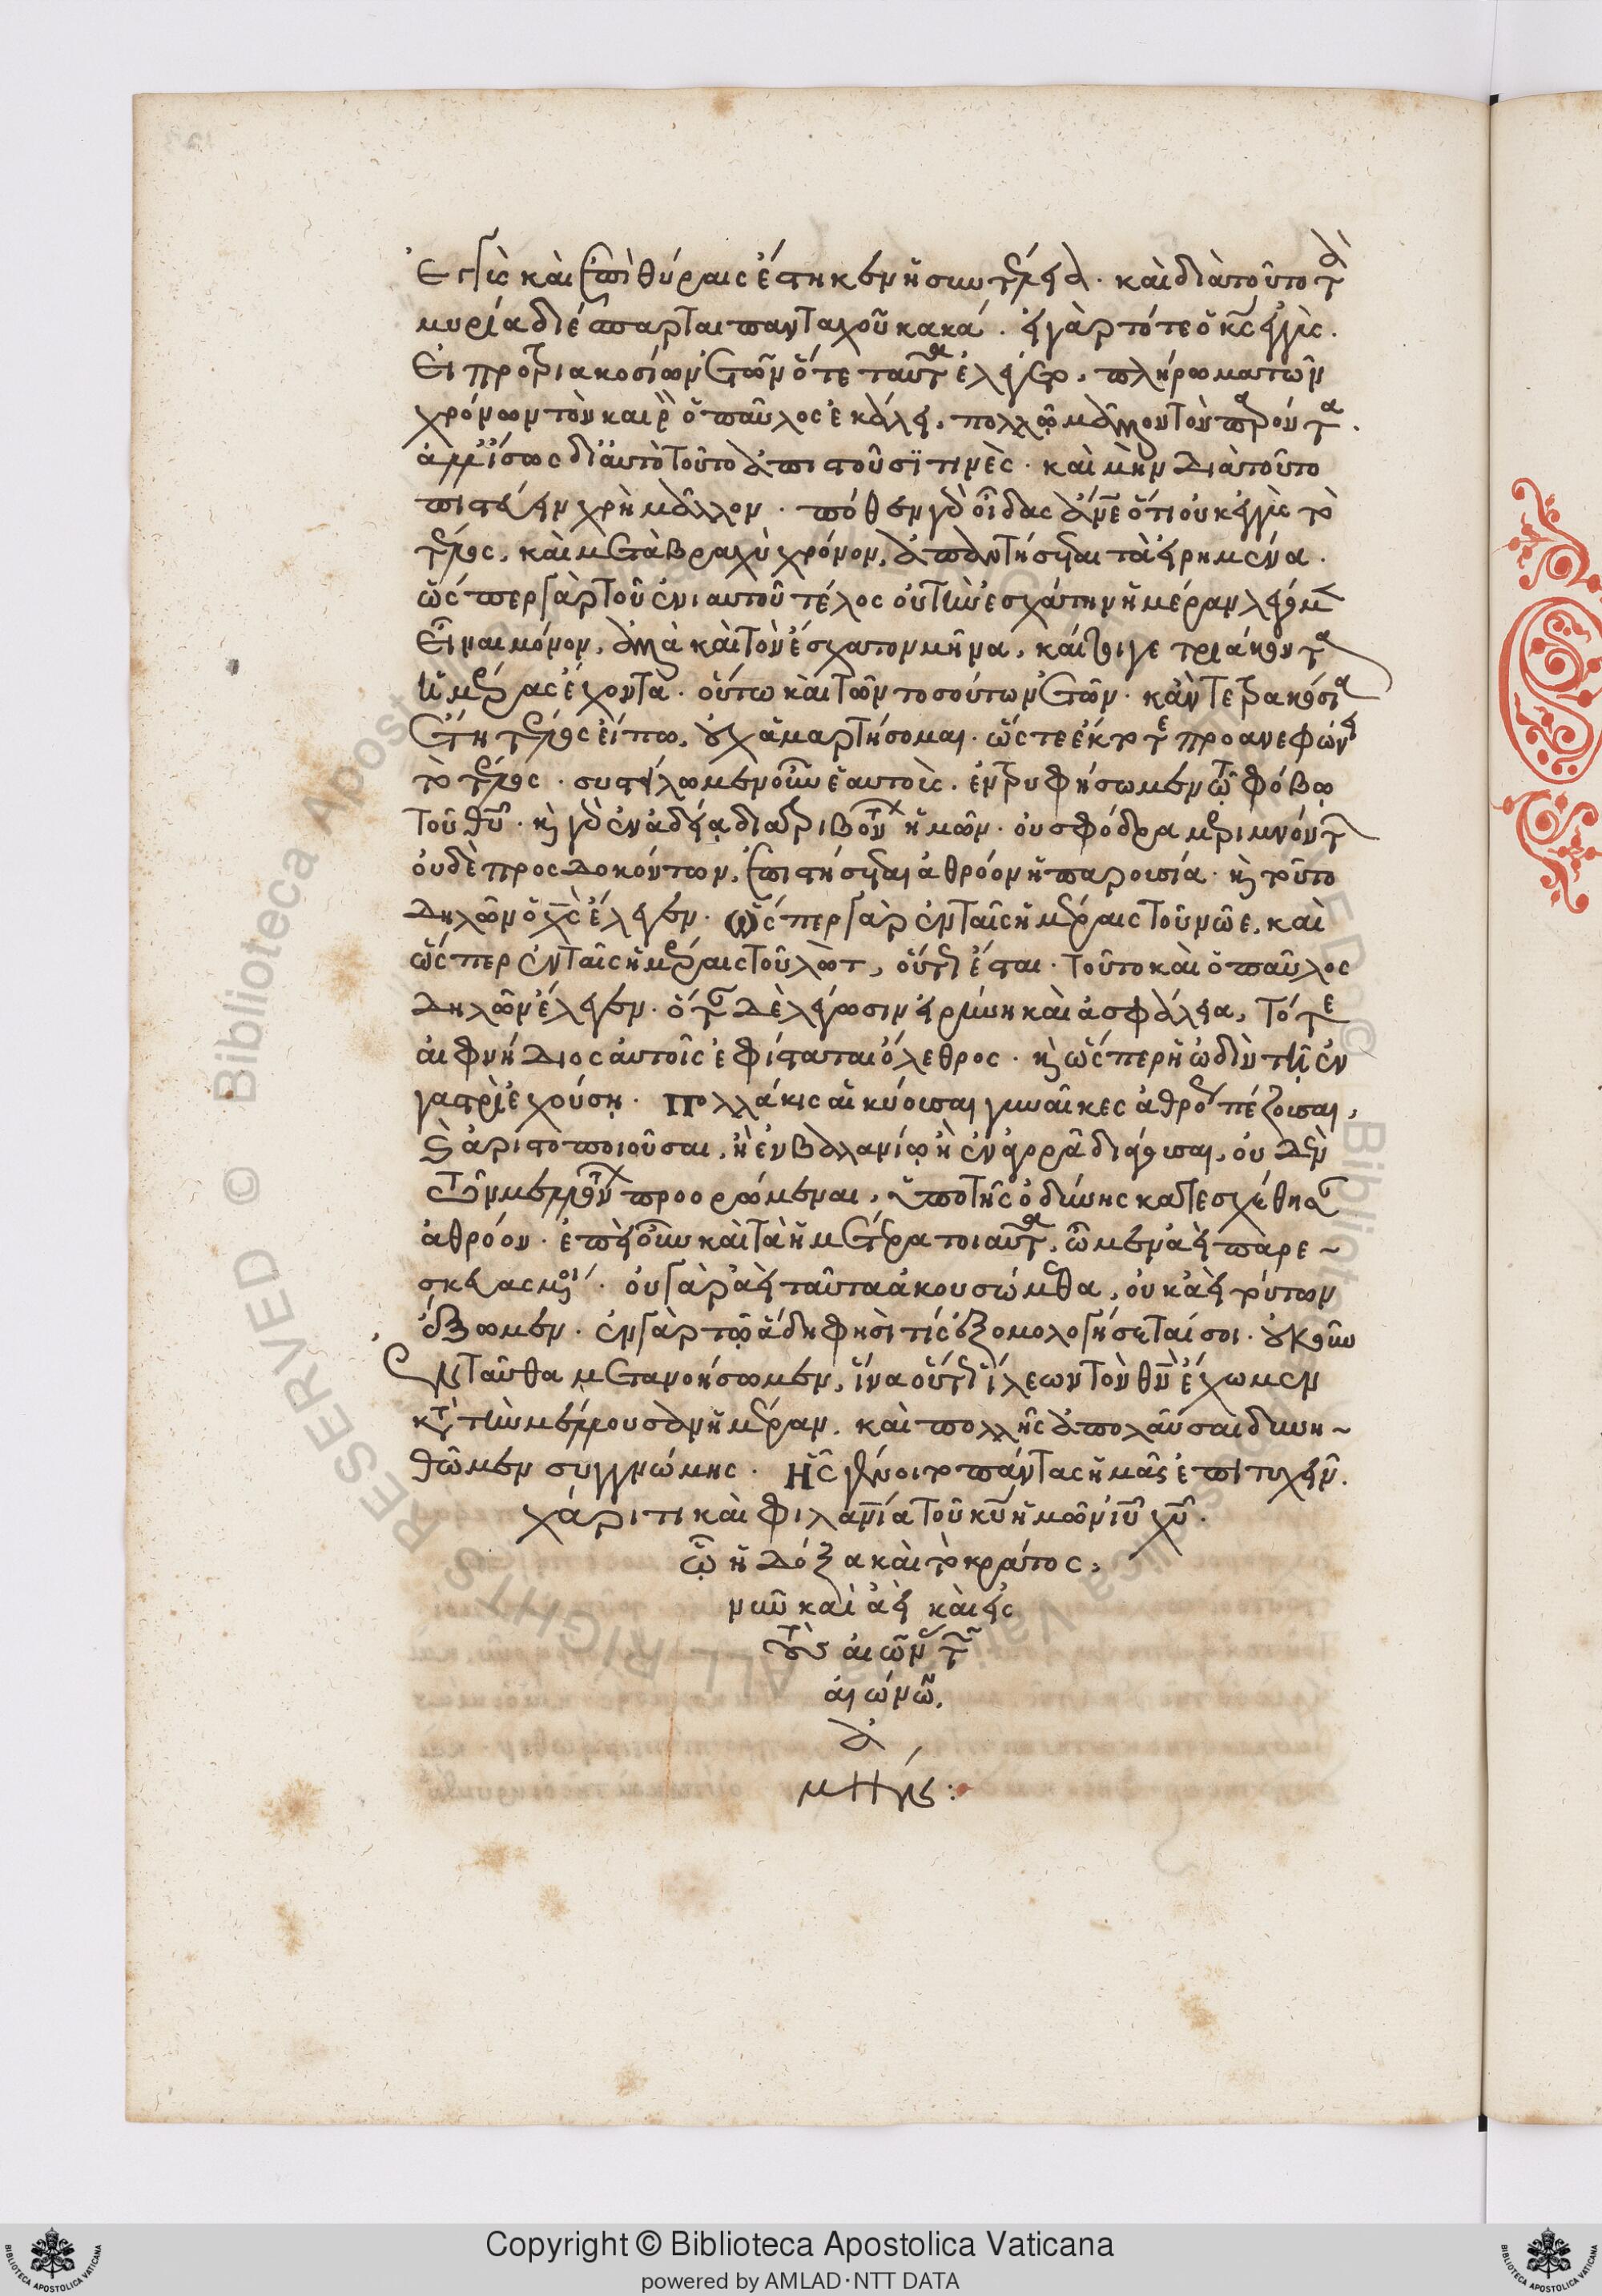 ἐγγὺς καὶ ἐπὶ θύραις ἕστηκεν ἡ συντέλεια. καὶ διὰ τοῦτο τὰ
μυρία διέσπαρται πανταχοῦ κακά. εἰ γὰρ τότε ὁ κς ἐγγὺς.
εἰ πρὸ τριακοσίων ἐτῶν ὅτε ταῦτα ἐλέγετο, πλήρωμα τῶν
χρόνων τὸν καιρὸν ὁ παῦλος ἐκάλει, πολλῷ μᾶλλον τὸν παρόντα.
ἀλλ' ἴσως δι' αὐτὸ τοῦτο ἀπιστοῦσί τινες. καὶ μὴν διὰ τοῦτο
πιστεύειν χρὴ μᾶλλον. πόθεν γὰρ οἶδας ἄνε ὅτι οὐκ ἐγγὺς τὸ
τέλος, καὶ μετὰ βραχὺ χρόνον, ἀπαντήσεσθαι τὰ εἰρημένα.
ὥσπερ γὰρ τοῦ ἐνιαυτοῦ τέλος οὐ τὴν ἐσχάτην ἡμέραν λέγομεν
εἶναι μόνον, ἀλλὰ καὶ τὸν ἔσχατον μῆνα, καίτοιγε τριάκοντα
ἡμέρας ἔχοντα. οὕτω καὶ τῶν τοσούτων ἐτῶν. κἂν τετρακόσια
ἔτη τέλος εἴπω, οὐχ ἁμαρτήσομαι. ὥστε ἔκτοτε προανεφώνει
τὸ τέλος. συστείλωμεν οὖν ἑαυτοὺς. ἐντρυφήσωμεν τῷ φόβῳ
τοῦ θυ. καὶ γὰρ ἐν ἀδείᾳ διατριβόντων ἡμῶν. οὐ σφόδρα μεριμνόντων
οὐδὲ προσδοκόντων, ἐπιστήσεσθαι ἀθρόον ἡ παρουσία. καὶ τοῦτο
δηλῶν ὁ χς ἔλεγεν. ὥσπερ γὰρ ἐν ταῖς ἡμέραις τοῦ νῶε, καὶ
ὥσπερ ἐν ταῖς ἡμέραις τοῦ λὼτ, οὕτως ἔσται. τοῦτο καὶ ὁ παῦλος
δηλῶν ἔλεγεν. ὅταν δὲ λέγωσιν εἰρήνη καὶ ἀσφάλεια, τότε
αἰφνήδιος αὐτοῖς ἐφίσταται ὄλεθρος. καὶ ὥσπερ ἡ ὠδὶν τῇ ἐν
γαστρὶ ἐχούσῃ. πολλάκις αἱ κύουσαι γυναῖκες ἀθρόον πέζουσαι,
καὶ ἀριστοποιοῦσαι, ἢ ἐν βαλανίῳ ἢ ἐν ἀγορᾶ διάγουσαι, οὐδὲν
τῶν μελλόντων προορώμεναι, ὑπὸ τῆς ὀδύνης κατεσχέθησαν
ἀθρόον. ἐπεὶ οὖν καὶ τὰ ἡμέτερα τοιαῦτα, ὦμεν ἀεὶ παρε~
σκευασμένοι. οὐ γὰρ ἀεὶ ταῦτα ἀκουσώμεθα, οὐκ ἀεὶ τούτων
ἕξωμεν. ἐν γὰρ τῷ ἅδη φησὶ τίς ἐξομολογήσεταί σοι. οὐκοῦν
ἐνταῦθα μετανοήσωμεν, ἵνα οὕτως ἵλεων τὸν θν ἔχωμεν
κατὰ τὴν μέλλουσαν ἡμέραν. καὶ πολλῆς ἀπολαῦσαι δυνη~
θῶμεν συγγνώμης. ἧς γένοιτο πάντας ἡμᾶς ἐπιτυχεῖν.
χάριτι καὶ φιλανία τοῦ κυ ἡμῶν ιυ χυ.
ᾧ ἡ δόξα καὶ τὸ κράτος,
νῦν καὶ ἀεὶ καὶ εἰς
τοὺς αἰῶνας τῶν
αἰώνων.
ἀ
μήν:
Copyright © Biblioteca Apostolica Vaticana
powered by AMLAD·NTT DATA